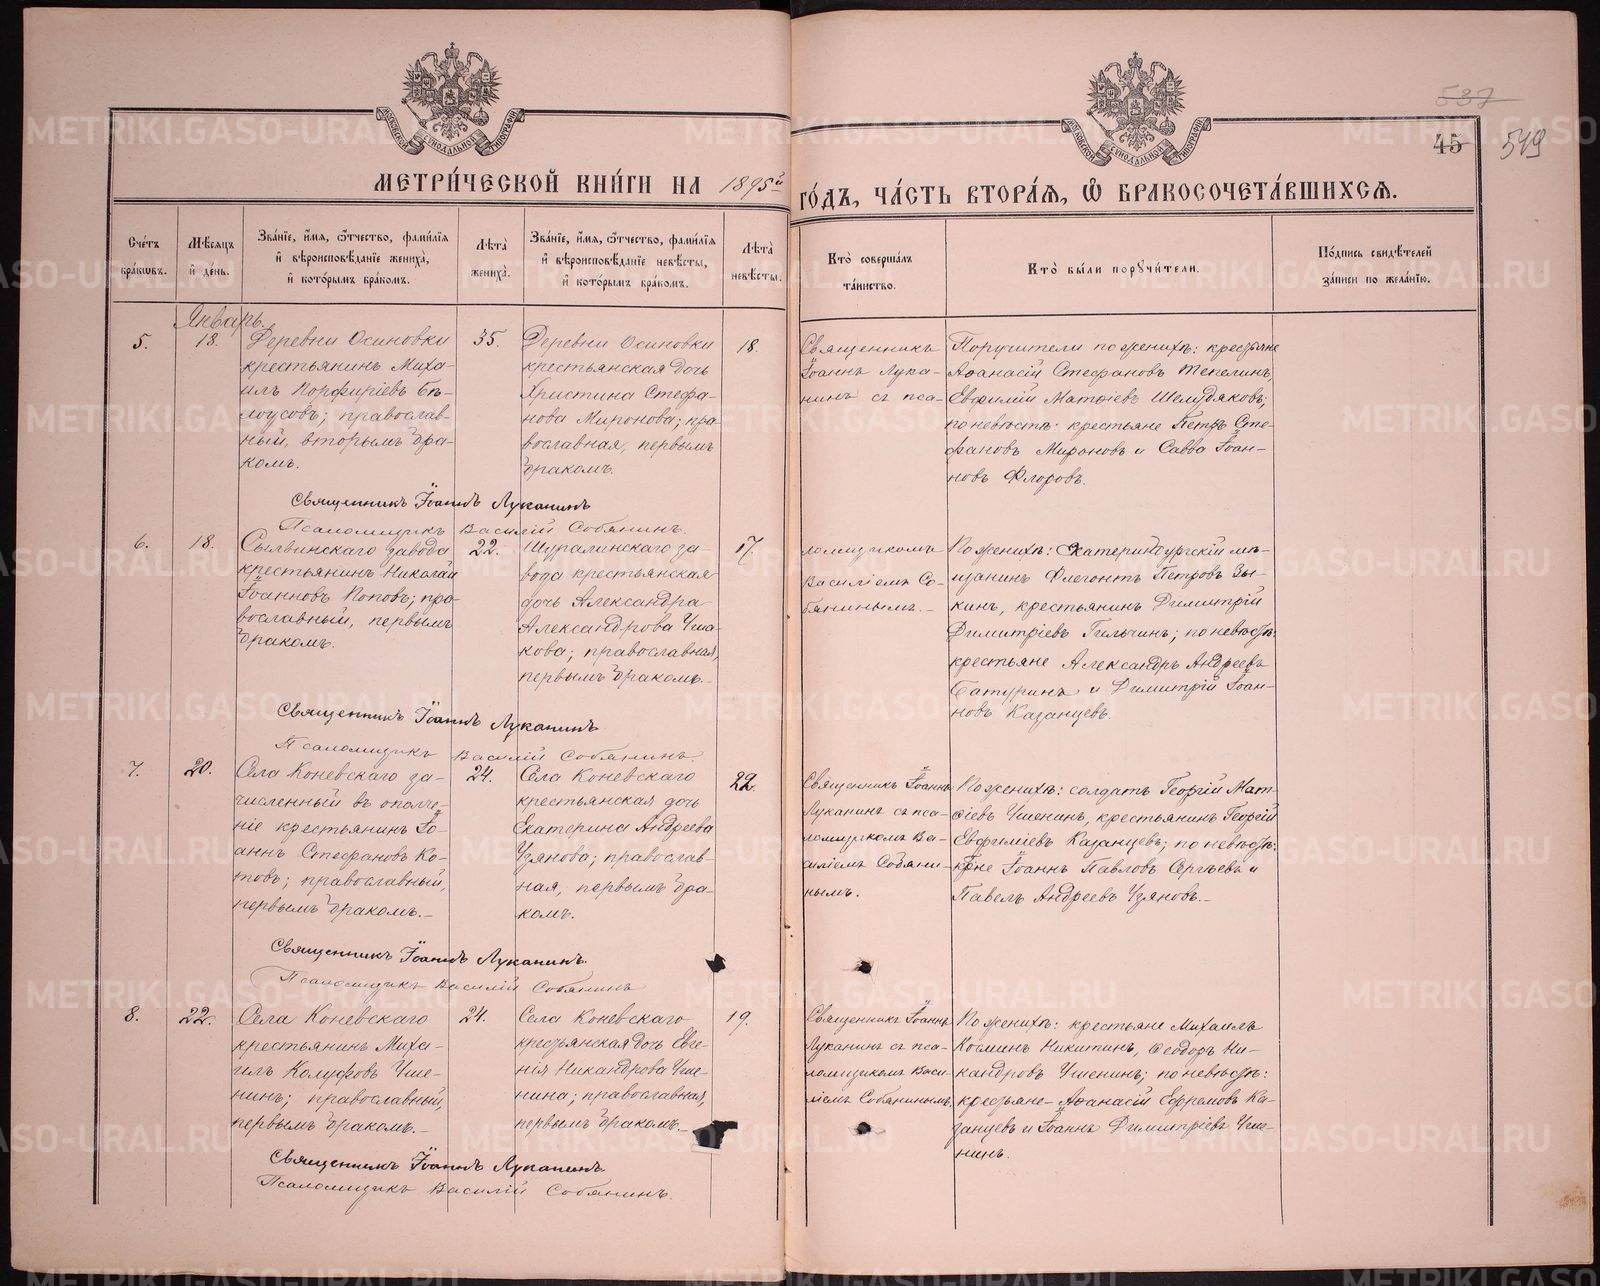 537
45 549
МОСКОВСКОЙ СѴНОДАЛЬНОЙ ТИПОГРАФІИ
МОСКОВСКОЙ СѴНОДАЛЬНОЙ ТИПОГРАФІИ
МЕТРИ́ЧЕСКОЙ КНИ́ГИ НА 1895й ГО́ДЪ, ЧА́СТЬ ВТОРА́Я, Ѡ БРАКОСОЧЕТА́ВШИХСЯ.
Сче́тъ
бра́кѡвъ.
Мѣ́сяцъ
и҆ де́нь.
Зва́нїе, и҆́мя, ѻ҆́тчество, фами́лїя
и҆ вѣроисповѣ́данїе жениха̀,
и҆ кото́рымъ бра́комъ.
Лѣ́та
жениха̀.
Зва́нїе, и҆́мя, ѻ҆́тчество, фами́лїя
и҆ вѣроисповѣ́данїе невѣ́сты,
и҆ кото́рымъ бра́комъ.
Лѣ́та
невѣ́сты.
Кто̀ соверша́лъ
та́инство.
Кто̀ бы́ли порꙋчи́тели.
По́дпись свидѣ́телей
за́писи по жела́нїю.
Январь.
5.
18.
Деревни Осиновки
крестьянинъ Миха-
илъ Порфиріевъ Бѣ-
лоусовъ; православ-
ный, вторымъ бра-
комъ.
35.
Деревни Осиновки
крестьянская дочь
Христина Стефа-
нова Миронова; пра-
вославная, первымъ
бракомъ.
18.
Священникъ
Іоаннъ Лука-
нинъ съ пса-
Поручители по женихѣ: крестьяне
Аѳанасій Стефановъ Тепелинъ,
Евфимій Матѳіевъ Шелудяковъ;
по невѣстѣ: крестьяне Петръ Сте-
фановъ Мироновъ и Савва Іоан-
новъ Флоровъ.
Священникъ Іоаннъ Луканинъ
Псаломщикъ Василій Собянинъ.
6.
18.
Сылвинскаго завода
крестьянинъ Николай
Іоанновъ Поповъ; пра-
вославный, первымъ
бракомъ.
22.
Шуралинскаго за-
вода крестьянская
дочь Александра
Александрова Уша-
кова; православная,
первымъ бракомъ.-
17.
ломщикомъ
Василіемъ Со-
бянинымъ.-
По женихѣ: Екатеринбургскій мѣ-
щанинъ Флегонтъ Петровъ Зы-
кинъ, крестьянинъ Димитрій
Димитріевъ Гильчинъ; по невѣстѣ:
крестьяне Александръ Андреевъ
Батуринъ и Димитрій Іоан-
новъ Казанцевъ.
Священникъ Іоаннъ Луканинъ
Псаломщикъ Василій Собянинъ.
7.
20.
Села Коневскаго за-
численный въ ополче-
ніе крестьянинъ Іо-
аннъ Стефановъ Ко-
товъ; православный,
первымъ бракомъ.-
24.
Села Коневскаго
крестьянская дочь
Екатерина Андреева
Узянова; православ-
ная, первымъ бра-
комъ.
22.
Священникъ Іоаннъ
Луканинъ съ пса-
ломщикомъ Ва-
силіемъ Собяни-
нымъ.
По женихѣ: солдатъ Георгій Мат-
ѳіевъ Ушенинъ, крестьянинъ Георгій
Евфиміевъ Казанцевъ; по невѣстѣ:
кр-не Іоаннъ Павловъ Сергѣевъ и
Павелъ Андреевъ Узяновъ.-
Священникъ Іоаннъ Луканинъ.
Псаломщикъ Василій Собянинъ
8.
22.
Села Коневскаго
крестьянинъ Миха-
илъ Калуфовъ Уше-
нинъ; православный,
первымъ бракомъ.-
24.
Села Коневскаго
крестьянская дочь Евге-
нія Никандрова Уше-
нина; православная,
первымъ бракомъ.-
19.
Священникъ Іоаннъ
Луканинъ съ пса-
ломщикомъ Васи-
ліемъ Собянинымъ.
По женихѣ: крестьяне Михаилъ
Косминъ Никитинъ, Ѳеодоръ Ни-
кандровъ Ушенинъ; по невѣстѣ:
крестьяне- Аѳанасій Ефремовъ Ка-
занцевъ и Іоаннъ Димитріевъ Уше-
нинъ.
Священникъ Іоаннъ Луканинъ
Псаломщикъ Василій Собянинъ.
METRIKI.GASO-URAL.RU